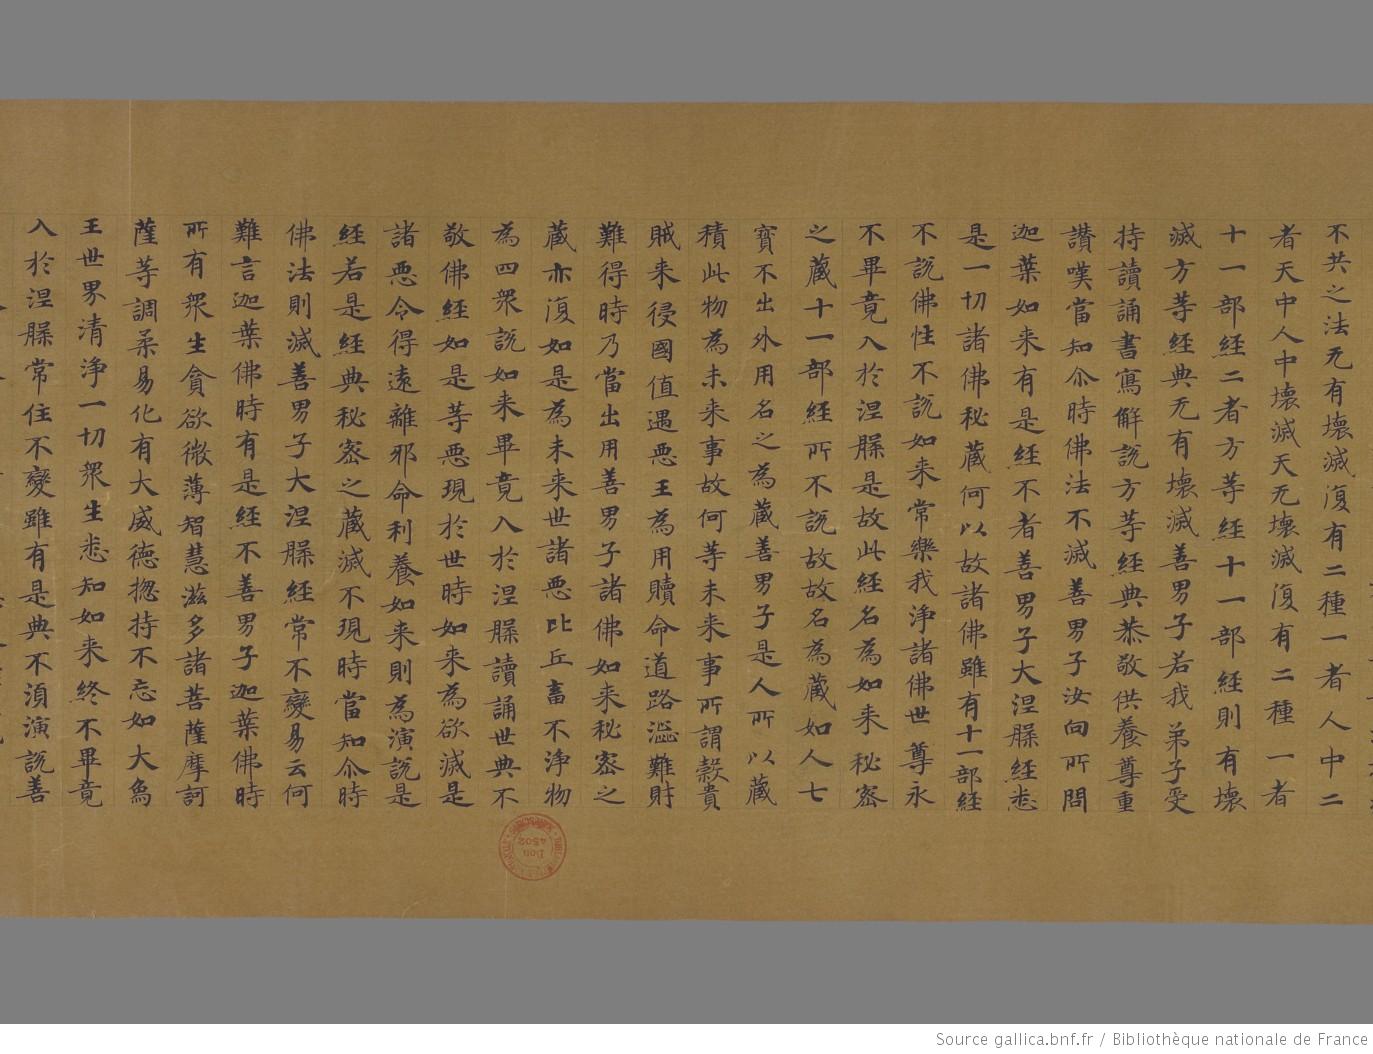 不共之法无有壞滅復有二種一者人中二
者天中人中壞滅天无壞滅復有二種一者
十一部經二者方等經十一部經則有壞
滅方等經典无有壞滅善男子若我弟子受
持讀誦書寫解說方等經典恭敬供養尊重
讚嘆當知尒時佛法不滅善男子汝向所問
迦葉如来有是經不者善男子大涅槃經悉
是一切諸佛秘藏何以故諸佛雖有十一部經
不說佛性不說如来常樂我淨諸佛世尊永
不畢竟入於涅槃是故此經名為如来秘密
之藏十一部經所不說故故名為藏如人七
寶不出外用名之為藏善男子是人所以藏
積此物為未来事故何等未来事所謂穀貴
賊来侵國值遇惡王為用贖命道路澁難財
難得時乃當出用善男子諸佛如来秘密之
藏亦復如是為未来世諸惡比丘畜不淨物
為四衆說如来畢竟入於涅槃讀誦世典不
敬佛經如是等惡現於世時如来為欲滅是
諸惡令得遠離邪命利養如来則為演說是
經若是經典秘密之藏滅不現時當知尒時
佛法則滅善男子大涅槃經常不變易云何
難言迦葉佛時有是經不善男子迦葉佛時
所有衆生貪欲微薄智慧滋多諸菩薩摩訶
薩等調柔易化有大威德揔持不忘如大爲
王世界清淨一切衆生悉知如来終不畢竟
入於涅槃常住不變雖有是典不湏演說善
Don 4502
Source gallica.bnf.fr / Bibliothèque nationale de France